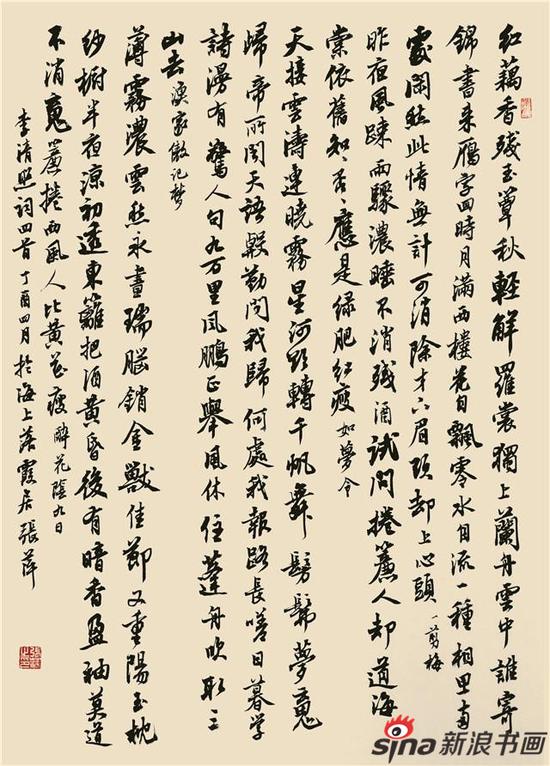 红藕香残玉簟秋輕解羅裳獨上蘭舟雲中誰寄
錦書来雁字回時月滿西樓花自飄零水自流一種相思兩
處閑愁此情無計可消除才下眉頭却上心頭 一剪梅
昨夜風疎雨驟濃睡不消残酒試問捲簾人却道海
棠依舊知〻否〻應是绿肥红瘦 如夢令
天接雲濤連曉霧星河欲轉千帆舞髣髴夢魂
歸帝所闻天語殷勤問我歸何處我報路長嗟日暮學
詩漫有驚人句九万里風鵬正舉風休住蓬舟吹取三
山去 漁家傲記梦
薄霧濃雲愁永晝瑞腦銷金獸佳節又重陽玉枕
纱橱半夜凉初透東籬把酒黄昏後有暗香盈袖莫道
不消魂簾捲西風人比黄花瘦 醉花陰九日
李清照词四首丁酉四月於海上落霞居張萍
sina新浪书画